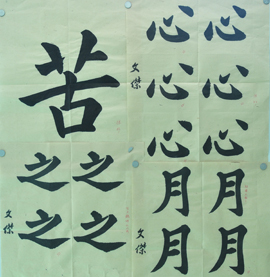 心心心月月
心心心月月
文傑
文傑
苦
之之
之之
文傑